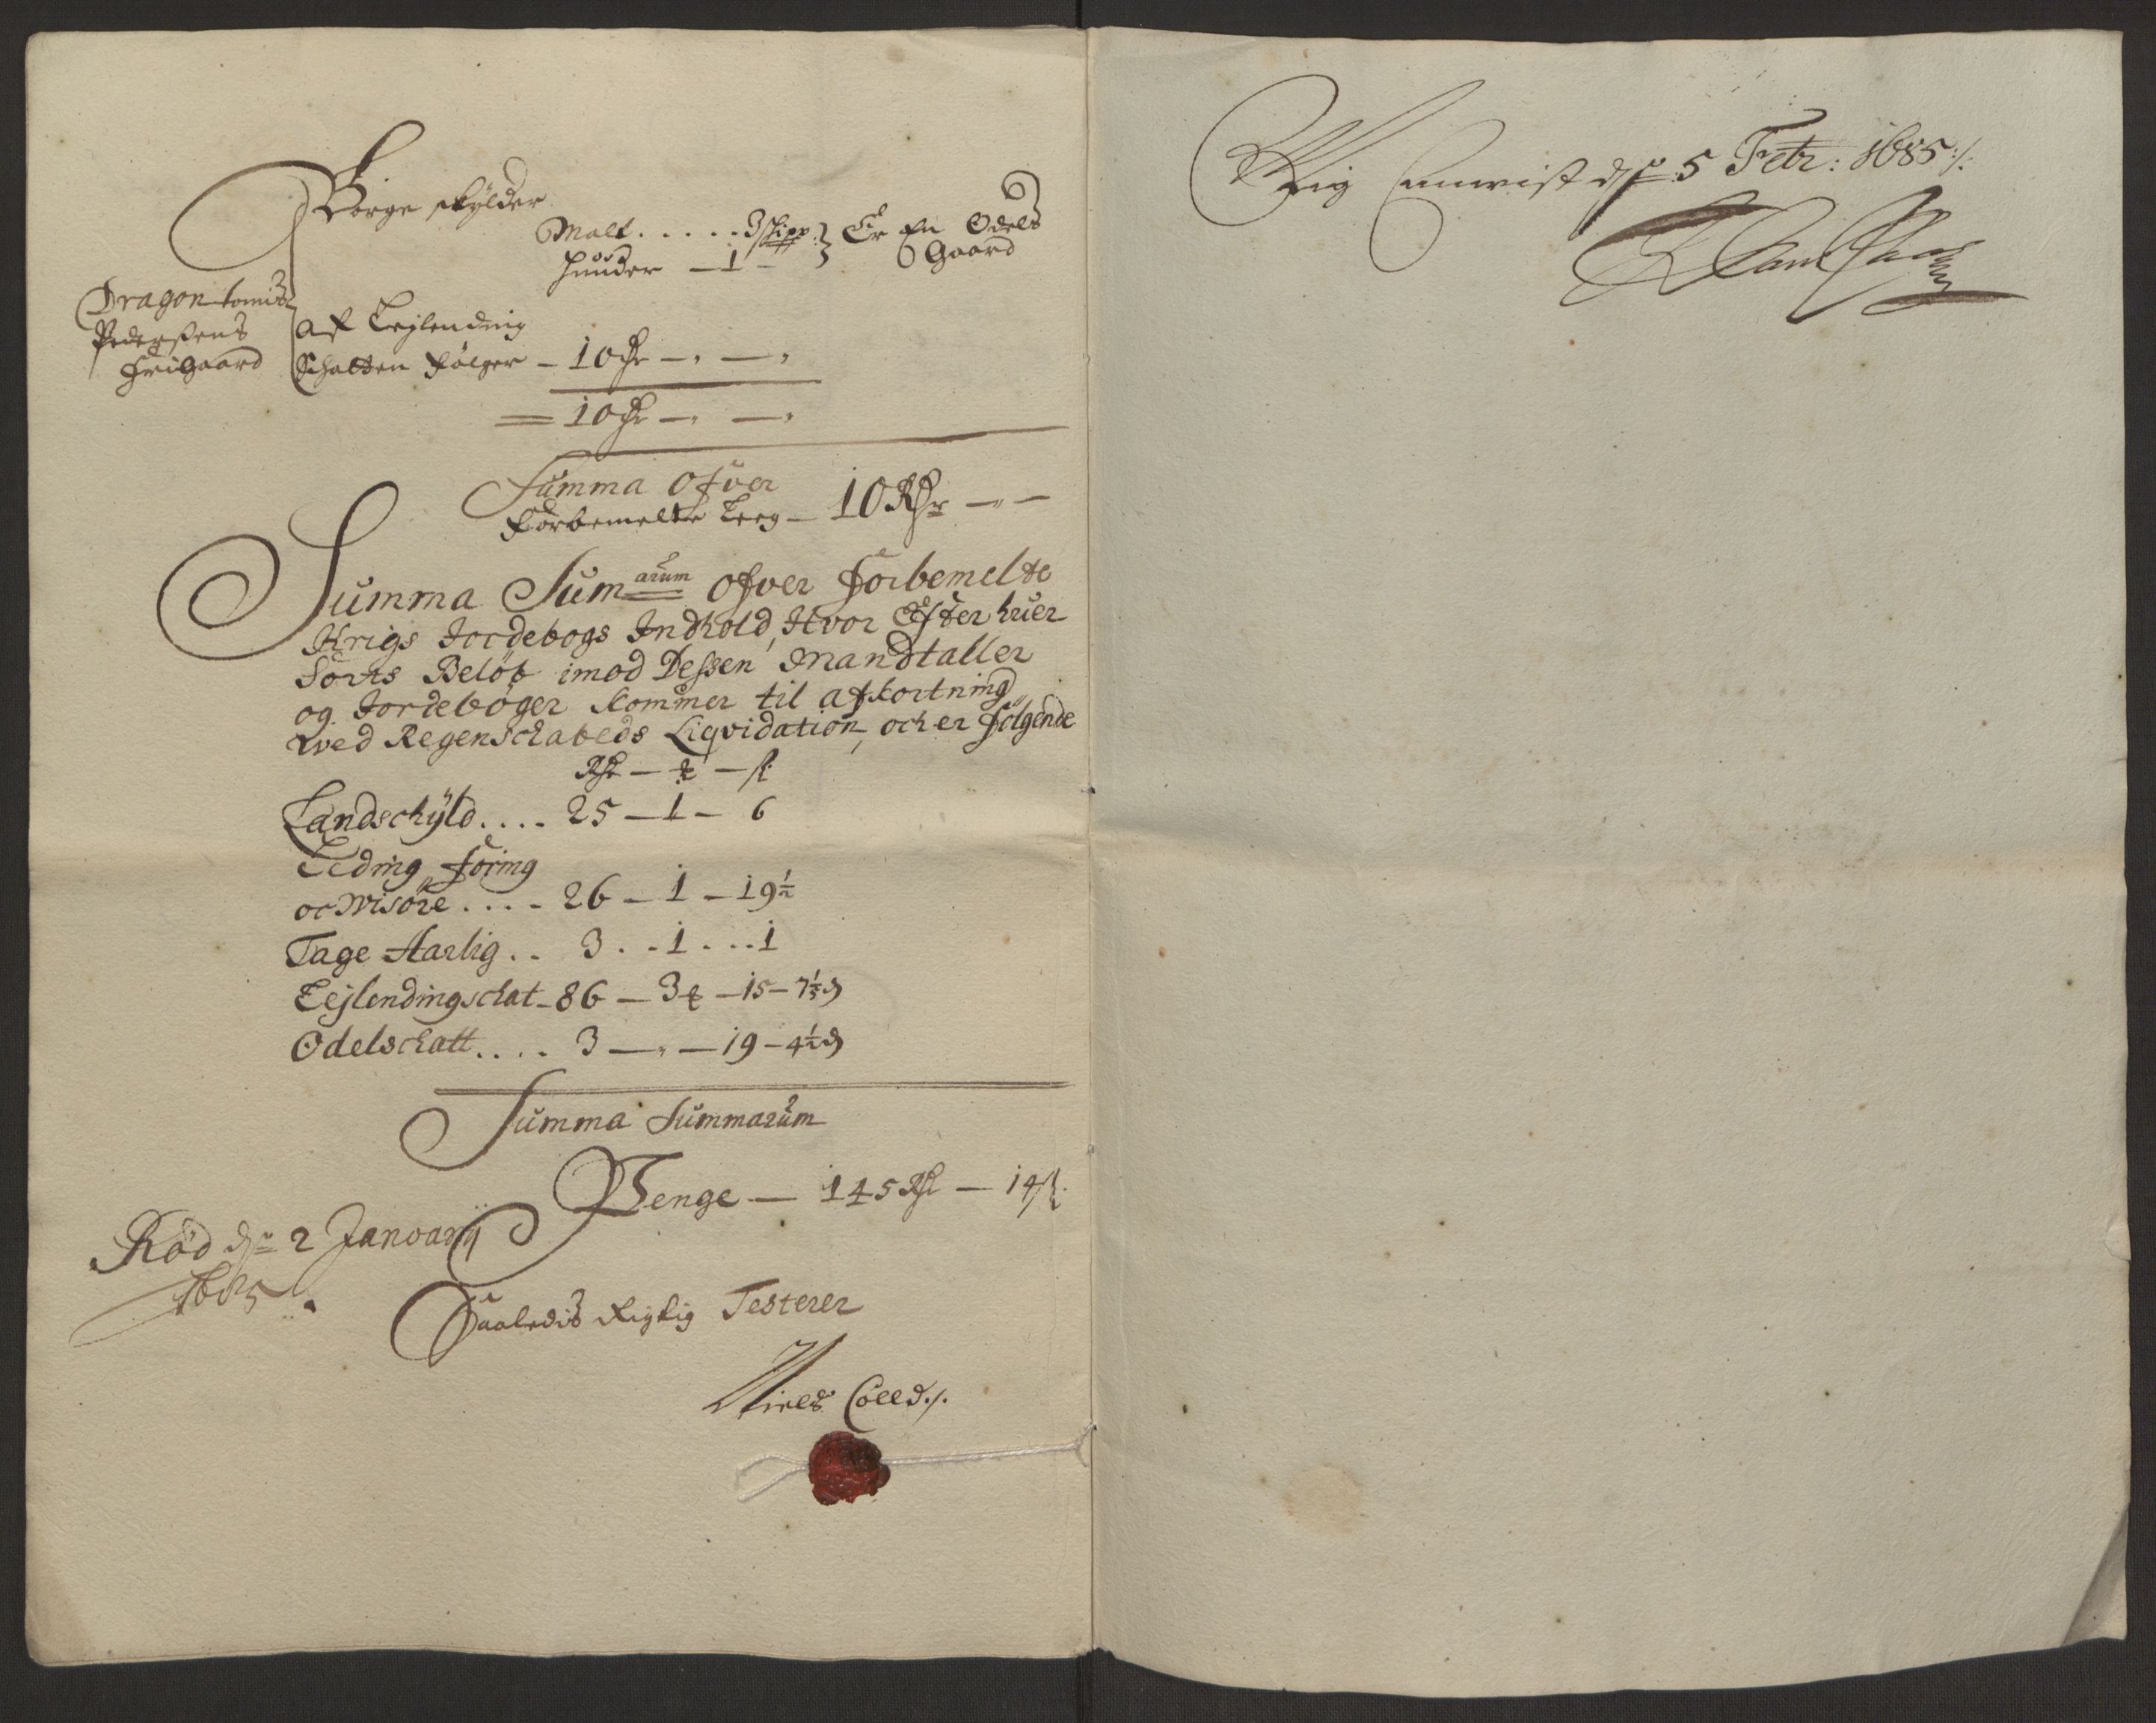 Borge skylder
Malt . . . . . 3 skipp: } Er En Odels
Huuder — 1 — Gaard
Dragon tomis
Pedersens
Frigaard
af Lejlending
Schatten følger — 10 Rdr — „ — „
= 10 Rdr — „ — „
Summa Ofver
forbemelte Leeg — 10 Rdr — „ —
Summa Sum arum ofver forbemelte
Krigs Jordebogs Indhold, Hvor Efter huer
Sorts Beløb imod Dessen Mandtaller
og Jordebøger kommer til afkortning
wed Regenschabeds Liqvidation, och er følgende
Rdr — — s:
Landschyld . . . . 25 — 1 — 6
Leding, foring
oc Wisøre . . . . 26 — 1 — 19½
Tage Aarlig . . 3 . . 1 . . . 1
Lejlendingschat — 86 — 3 — 15 — 7⅕ d
Odelschatt . . . . 3 — „ — 19 — 4½ d
Summa Summarum
Penge — 145 Rdr — 14 s:
Rød dn 2 Januarij
1685.
Saaledis Rigtig Testerer
Niels Colld ./.
Mig Anwist dn 5 Febr: 1685 ./.